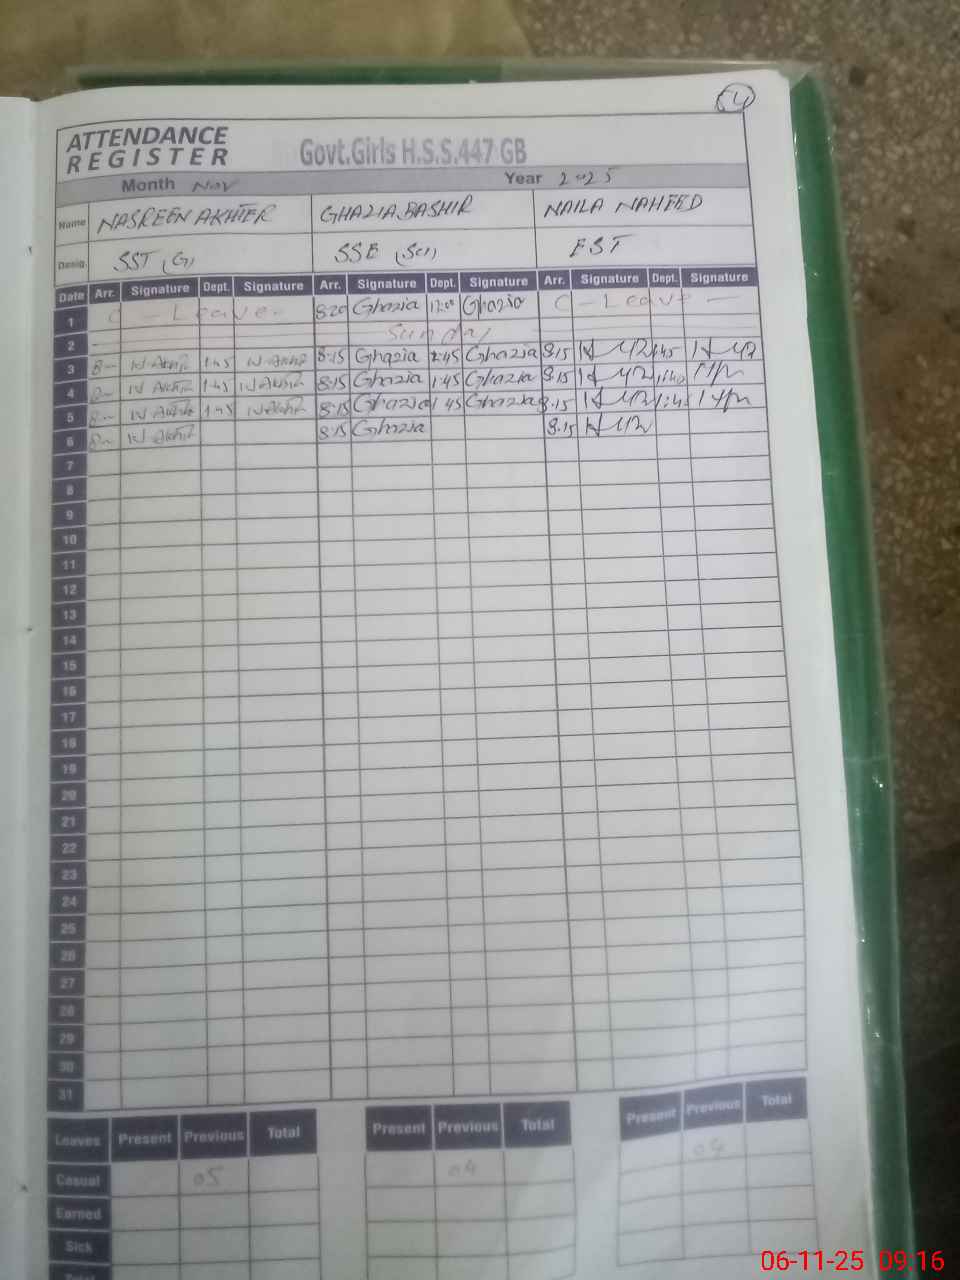 54
ATTENDANCE REGISTER Govt.Girls H.S.S.447 GB
Month Nov Year 2025
Name NASREEN AKHTER GHAZIA BASHIR NAILA NAHEED
Desig. SST (G) SSE (Sci) EST
Date Arr. Signature Dept. Signature Arr. Signature Dept. Signature Arr. Signature Dept. Signature
1 C - Leave - 8:20 Ghazia 12:00 Ghazia C - Leave -
2 Sunday
3 8 - N. Akhter 1:45 N. Akhter 8:15 Ghazia 1:45 Ghazia 8:15 1:45
4 8 - N Akhter 1:45 N Akhter 8:15 Ghazia 1:45 Ghazia 8:15
5 8 - N Akhter 1:45 N Akhter 8:15 Ghazia 1:45 Ghazia 8:15 1:45
6 8 - N Akhter 8:15 Ghazia 8:15
7
8
9
10
11
12
13
14
15
16
17
18
19
20
21
22
23
24
25
26
27
28
29
30
31
Leaves Present Previous Total Present Previous Total Present Previous Total
Casual 05 04 04
Earned
Sick
Total
06-11-25 09:16